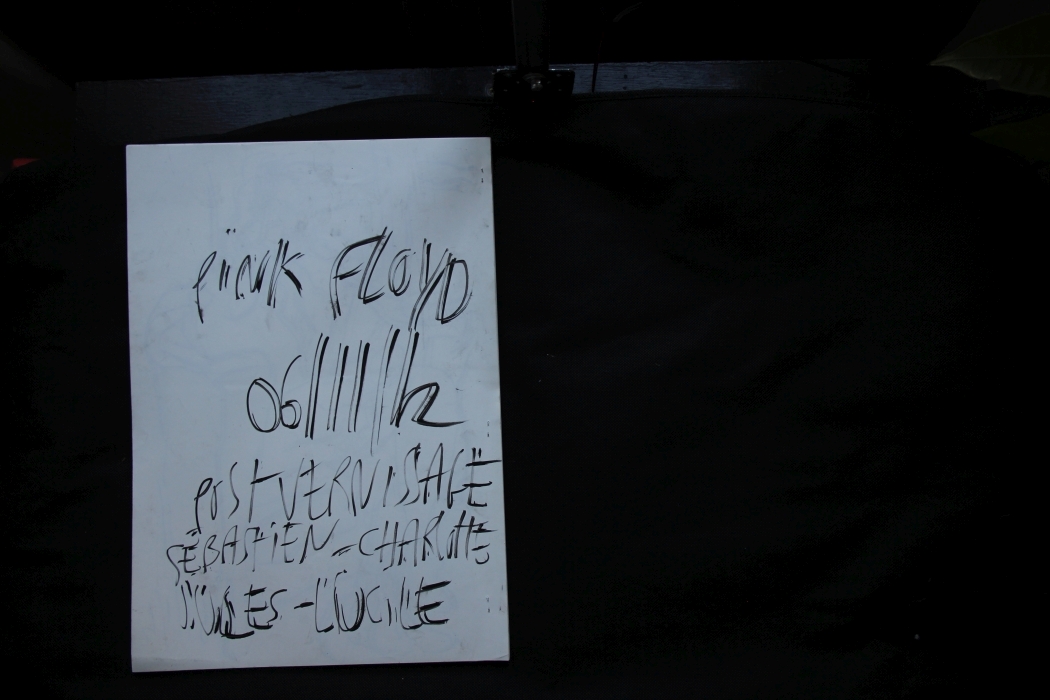 PINK FLOYD
06/11/12
POSTVERNISSAGE
SÉBASTIEN-CHARLOTTE
JULES-LUCILE